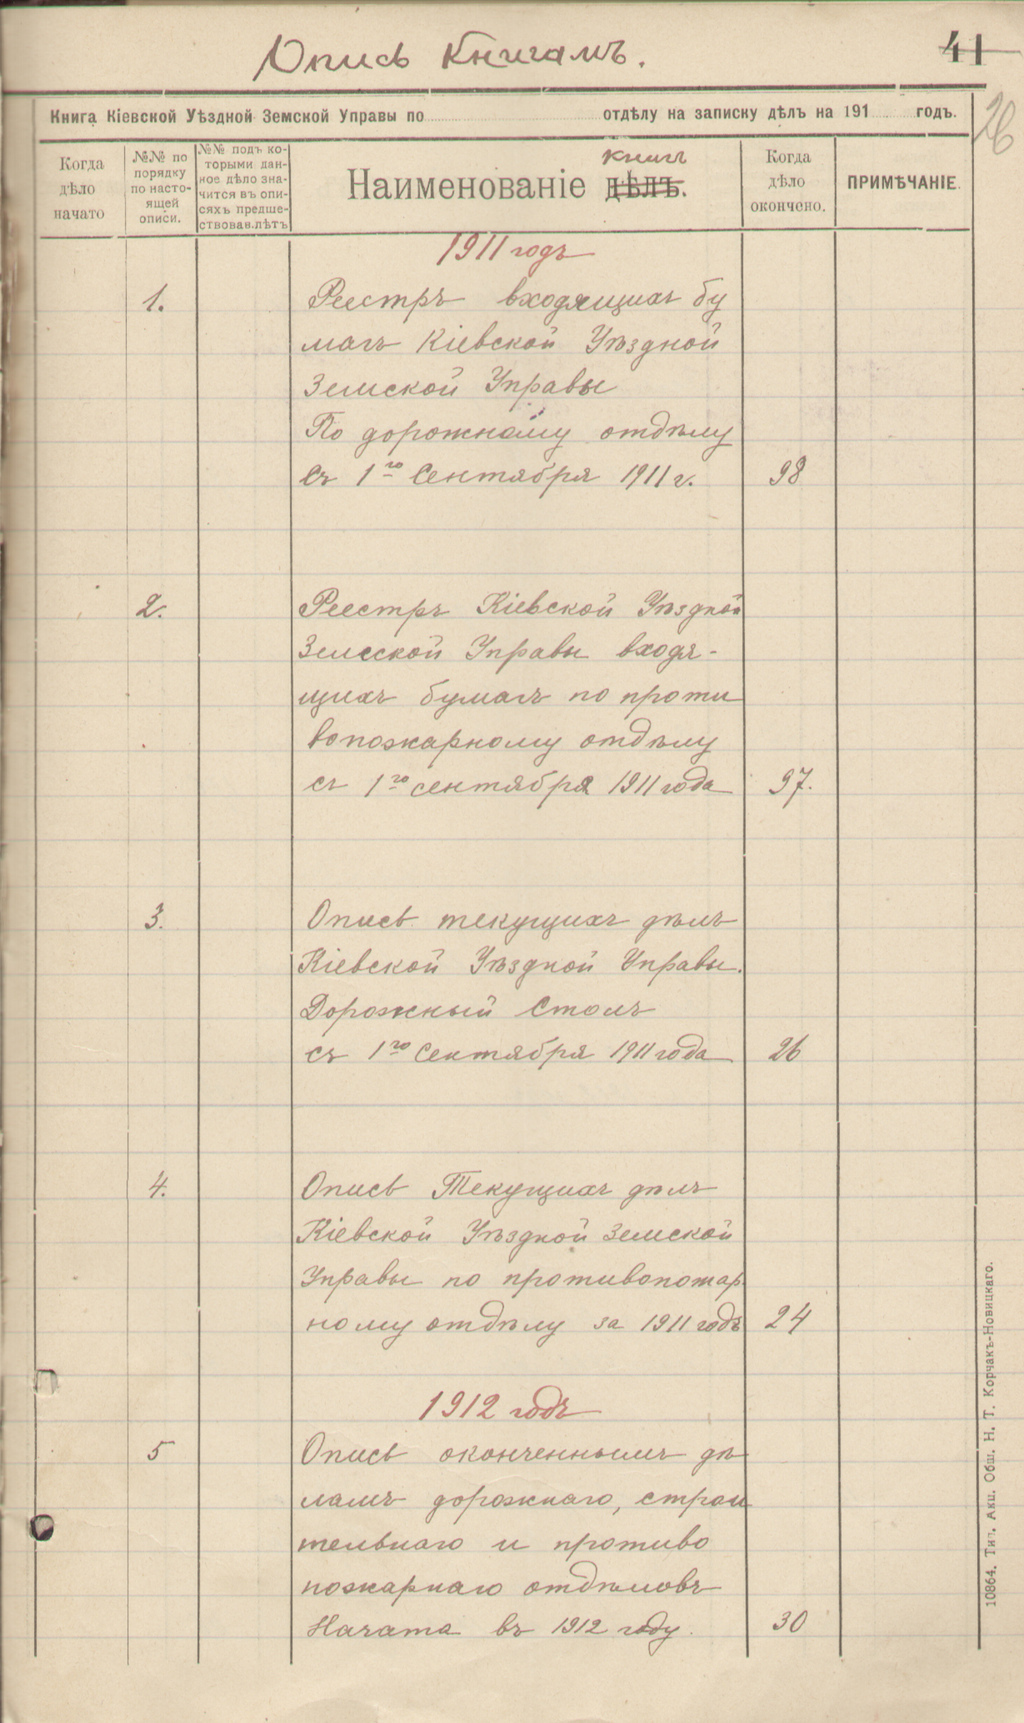 Опись Книгамъ.
41
26
Книга Кіевской Уѣздной Земской Управы по отдѣлу на записку дѣлъ на 191 годъ.
Когда дѣло начато
№№ по порядку по настоящей описи.
№№ подъ которыми данное дѣло значится въ описяхъ предшествовав. лѣтъ
Наименованіе дѣлъ. книгъ
Когда дѣло окончено.
ПРИМѢЧАНІЕ.
1911 годъ
1. Реестръ входящихъ бу
магъ Кіевской Уѣздной
Земской Управы
По дорожному отдѣлу
съ 1го Сентября 1911 г. 98
2. Реестръ Кіевской Уѣздной
Земской Управы входя-
щихъ бумагъ по проти
вопожарному отдѣлу
съ 1го сентября 1911 года 97.
3. Опись текущихъ дѣлъ
Кіевской Уѣздной Управы.
Дорожный Столъ
съ 1го Сентября 1911 года 26
4. Опись Текущихъ дѣлъ
Кіевской Уѣздной Земской
Управы по противопожар
ному отдѣлу за 1911 годъ 24
1912 годъ
5 Опись оконченнымъ дѣ
ламъ дорожнаго, строи
тельнаго и противо
пожарнаго отдѣловъ
Начата въ 1912 году. 30
10864. Тип. Акц. Общ. Н. Т. Корчакъ-Новицкаго.